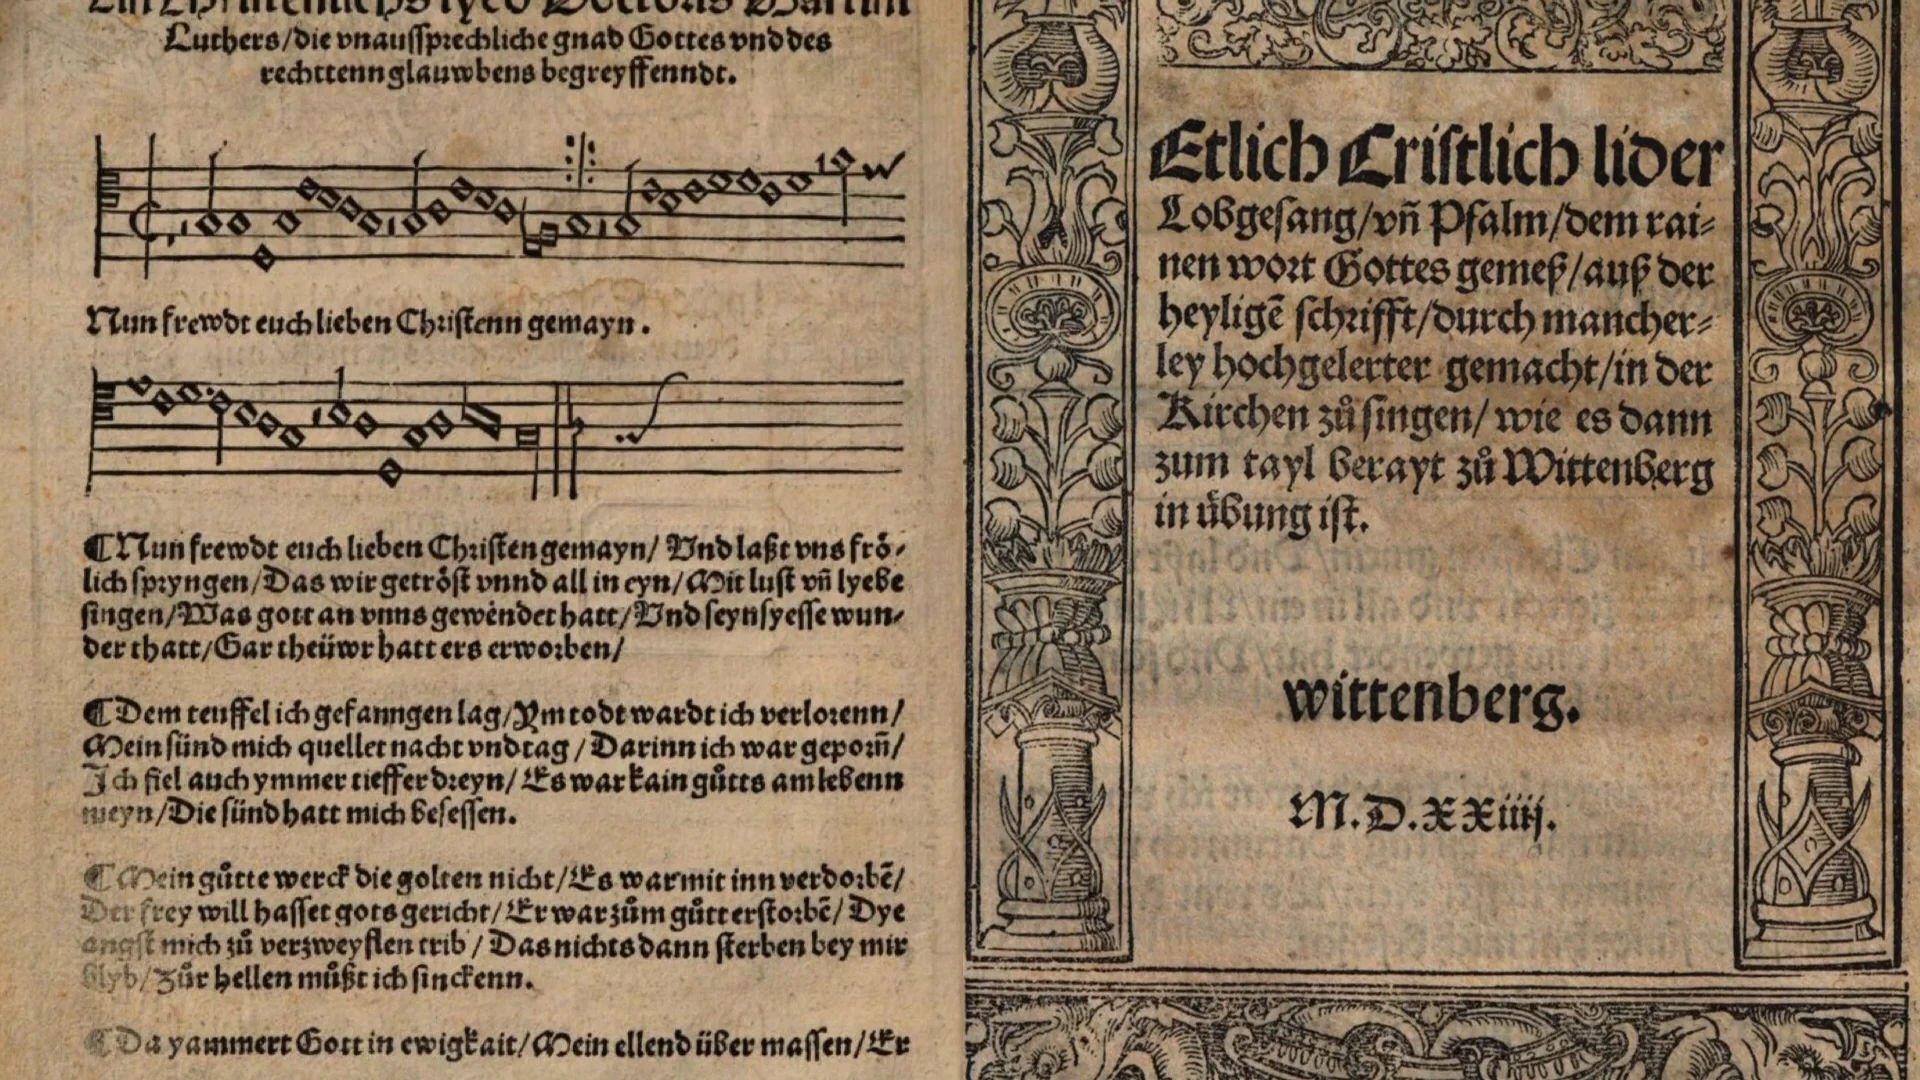 Ein Christenlichs lyed Doctoris Martini
Luthers/die vnaussprechliche gnad Gottes vnd des
rechttenn glauwbens begreyffenndt.
Nun frewdt euch lieben Christenn gemayn.
Nun frewdt euch lieben Christen gemayn/ Vnd laßt vns frö-
lich spryngen/Das wir getröst vnnd all in eyn/Mit lust vn̄ lyebe
singen/Was gott an vnns gewendet hatt/Vnd seyn syesse wun-
der thatt/Gar theüwr hatt ers erworben/
Dem teuffel ich gefanngen lag/Ym todt wardt ich verlorenn/
Mein sünd mich quellet nacht vnd tag/Darinn ich war geporn̄/
Ich fiel auch ymmer tieffer dreyn/Es war kain gůtts am lebenn
meyn/Die sünd hatt mich besessen.
Mein gůtte werck die golten nicht/Es war mit inn verdorbē/
Der frey will hasset gots gericht/Er war zům gůtt erstorbē/Dye
angst mich zů verzweyflen trib/Das nichts dann sterben bey mir
blyb/Zůr hellen můßt ich sinckenn.
Da yammert Gott in ewigkait/Mein ellend über massen/Er
Etlich Cristlich lider
Lobgesang/vn̄ Psalm/dem rai-
nen wort Gottes gemeß/auß der
heyligē schrifft/durch mancher-
ley hochgelerter gemacht/in der
Kirchen zů singen/wie es dann
zum tayl berayt zů Wittenberg
in übung ist.
wittenberg.
M.D.XXiiij.